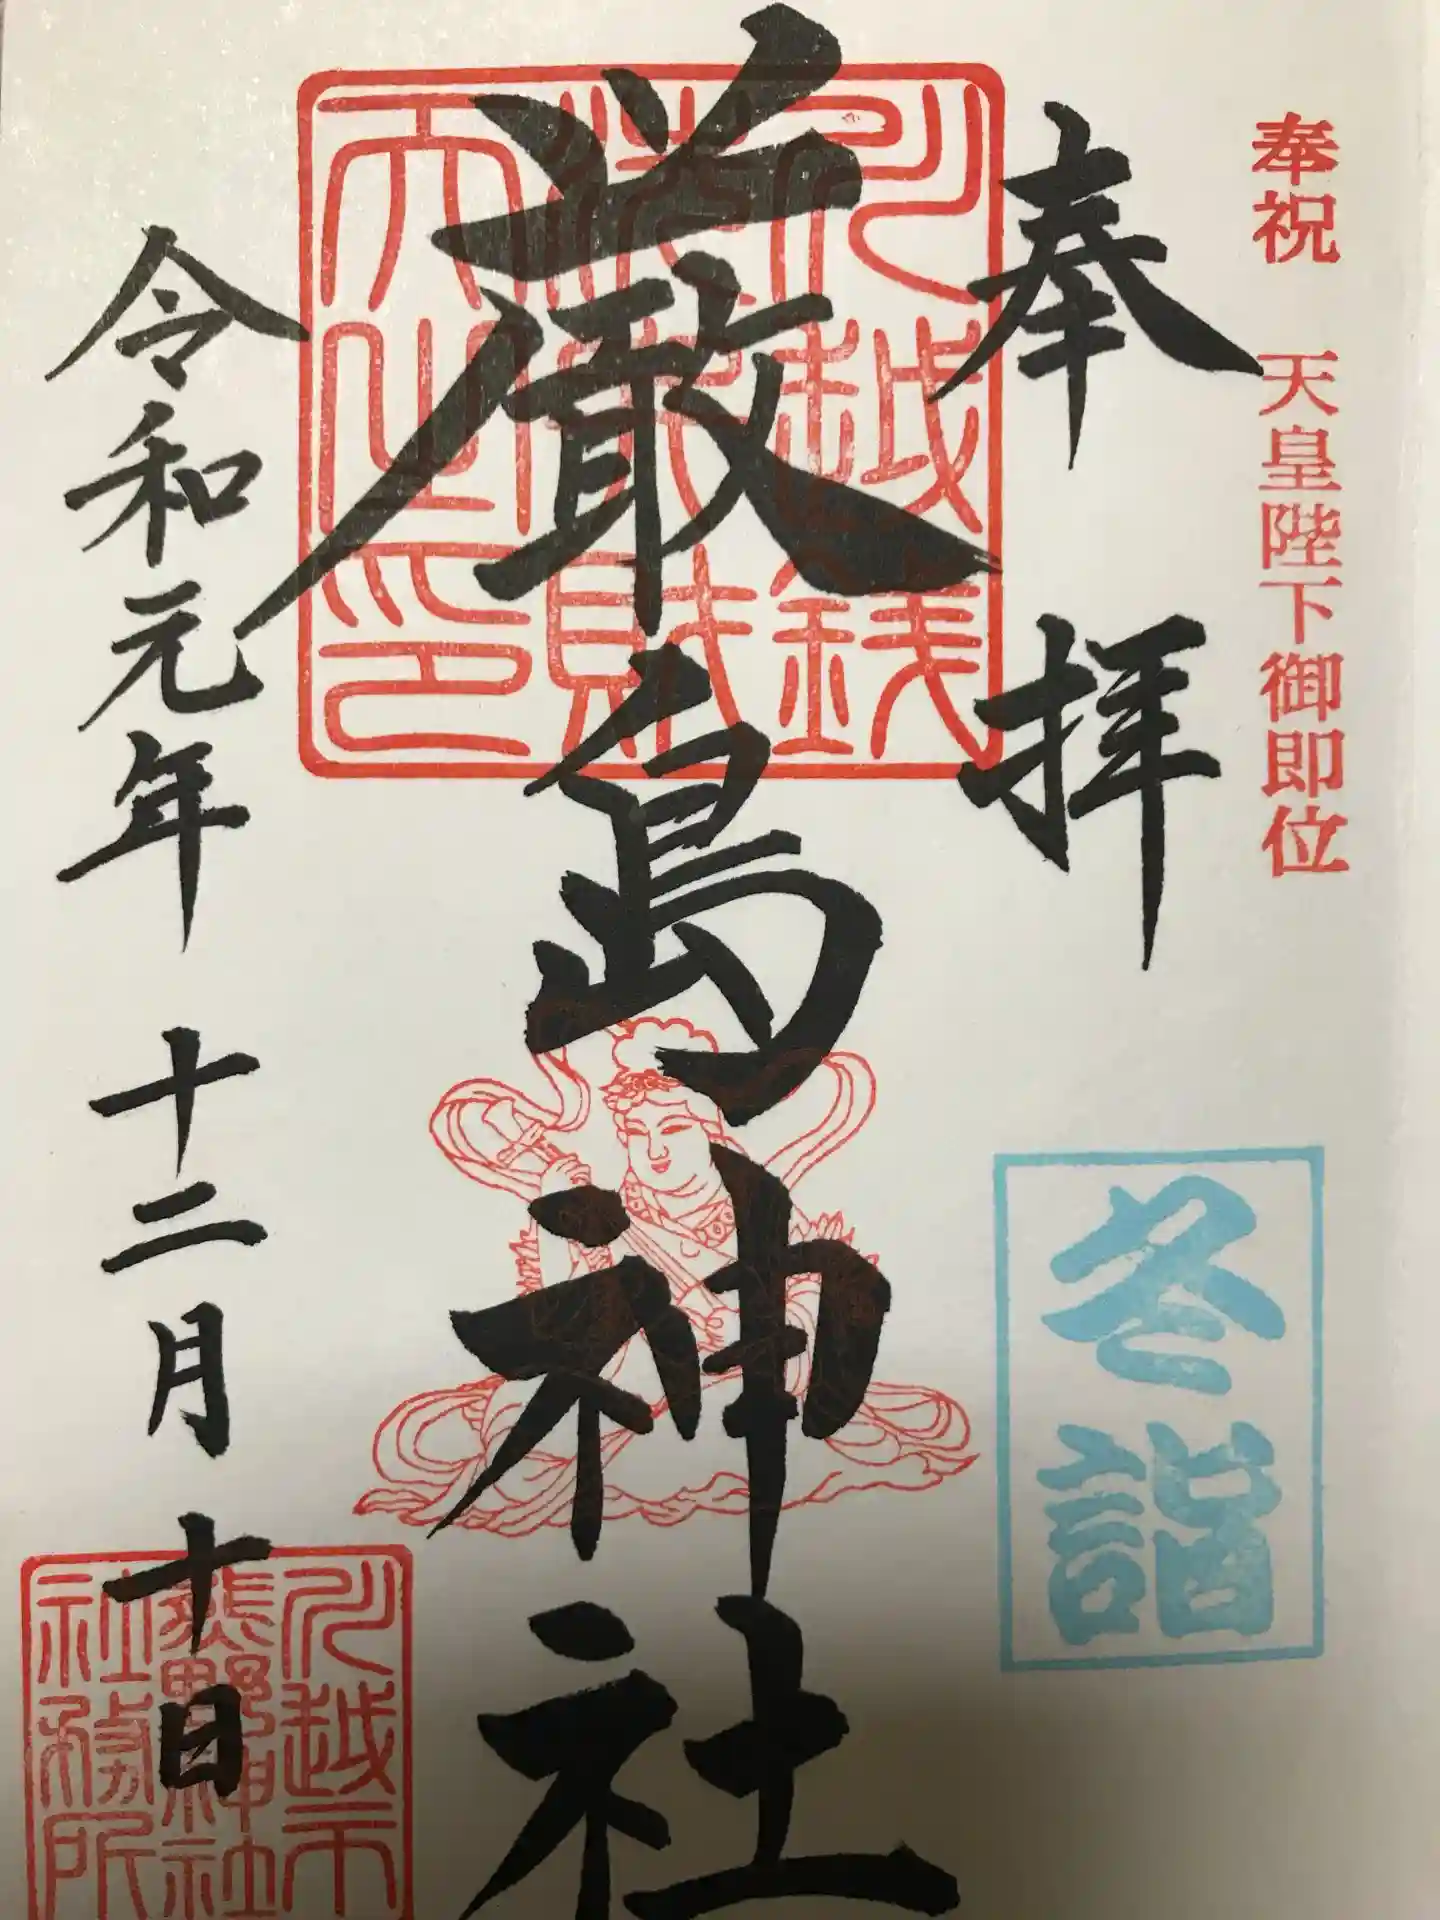 奉祝　天皇陛下御即位
奉拝
冬詣
川越銭
洗弁財
天之印
厳島神社
令和元年　十二月　十日
川越市
熊野神社
社務所